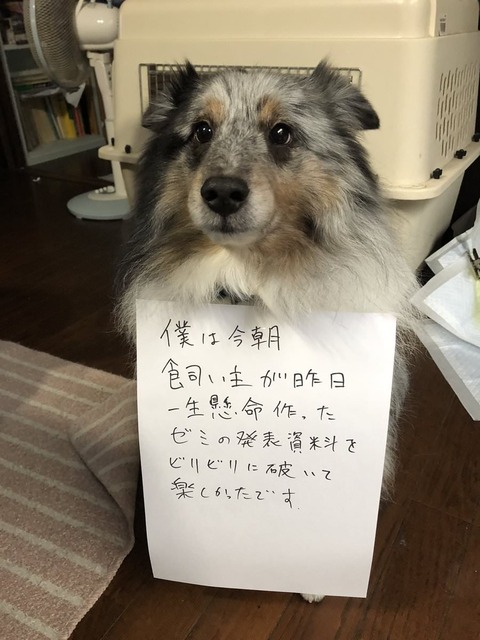 僕は今朝
飼い主が昨日
一生懸命作った
ゼミの発表資料を
ビリビリに破いて
楽しかったです。